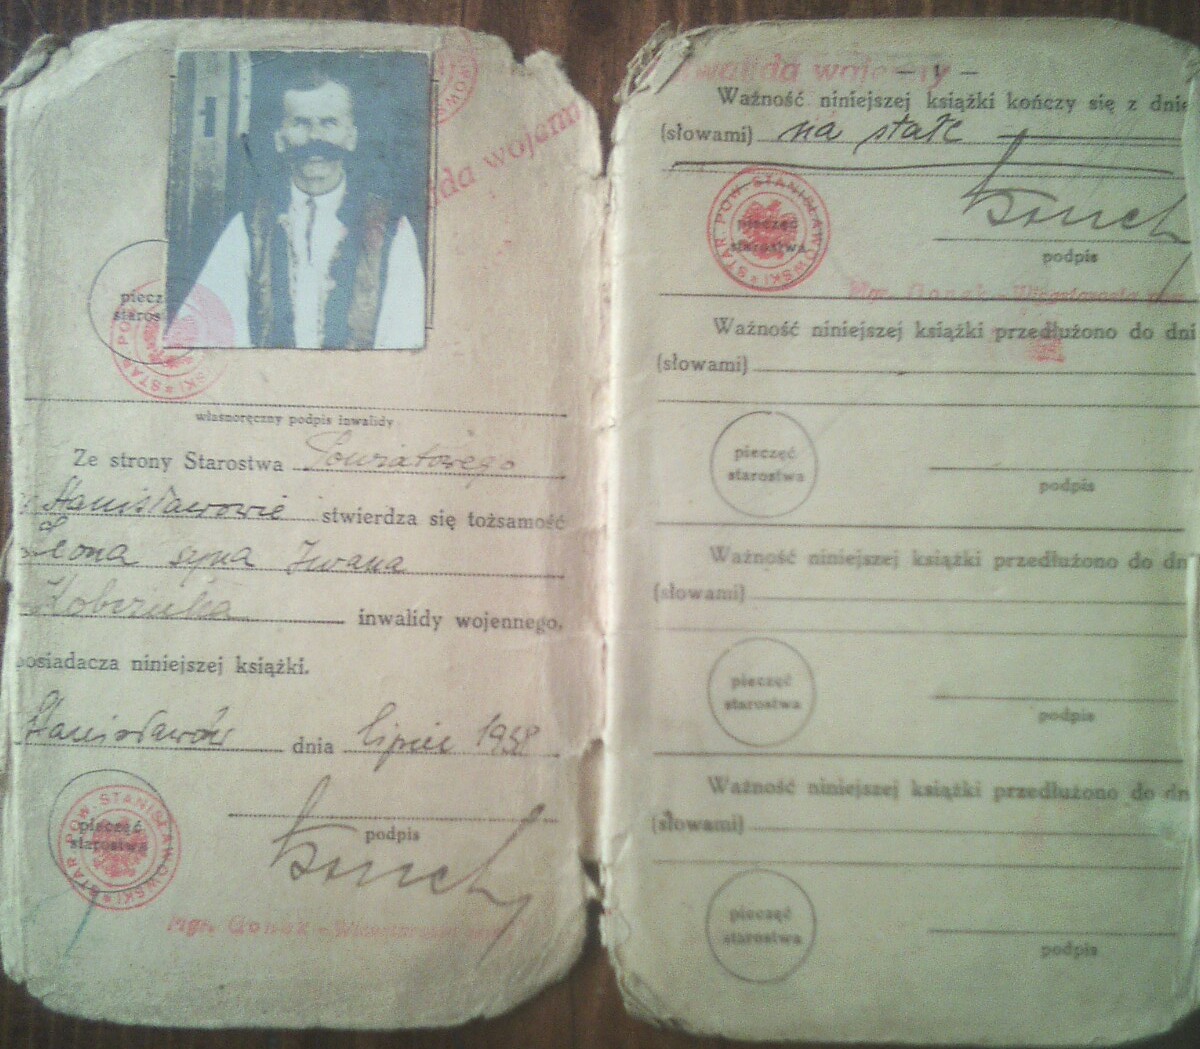 wojenn
piecz
staros
STAR. POW. STANISŁAWOWSKI
własnoręczny podpis inwalidy
Ze strony Starostwa Powiatowego
Stanisławowie stwierdza się tożsamość
Leona syna Iwana
Kobczuka inwalidy wojennego,
posiadacza niniejszej książki.
Stanisławów dnia lipiec 1938
pieczęć
starostwa
STAR. POW. STANISŁAWOWSKI
podpis
Mgr. Gonek - Wicestarosta
walida wojenny
Ważność niniejszej książki kończy się z dnie
(słowami) na stałe
pieczęć
starostwa
STAR. POW. STANISŁAWOWSKI
podpis
Mgr. Gonek - Wicestarosta
Ważność niniejszej książki przedłużono do dni
(słowami)
pieczęć
starostwa
podpis
Ważność niniejszej książki przedłużono do dn
(słowami)
pieczęć
starostwa
podpis
Ważność niniejszej książki przedłużono do dn
(słowami)
pieczęć
starostwa
podpis